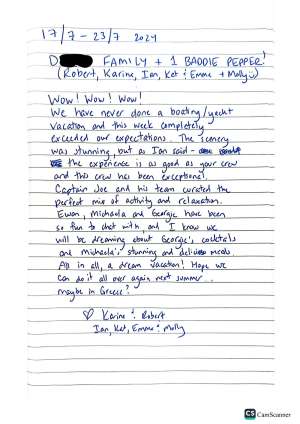 17/7 - 23/7 2024
D FAMILY + 1 BADDIE PEPPER!
(Robert, Karine, Ian, Kat & Emme + Molly☺)
Wow! Wow! Wow!
We have never done a boating/yacht
vacation and this week completely
exceeded our expectations. The scenery
was stunning but as Ian said -
the experience is as good as your crew
and this crew has been exceptional.
Captain Joe and his team curated the
perfect mix of activity and relaxation.
Ewan, Michaela and Georgie have been
so fun to chat with and I know we
will be dreaming about Georgie's cocktails
and Michaela's stunning and delicious meals.
All in all, a dream vacation! Hope we
can do it all over again next summer...
maybe in Greece?
♡ Karine & Robert
Ian, Kat, Emme & Molly
CS CamScanner